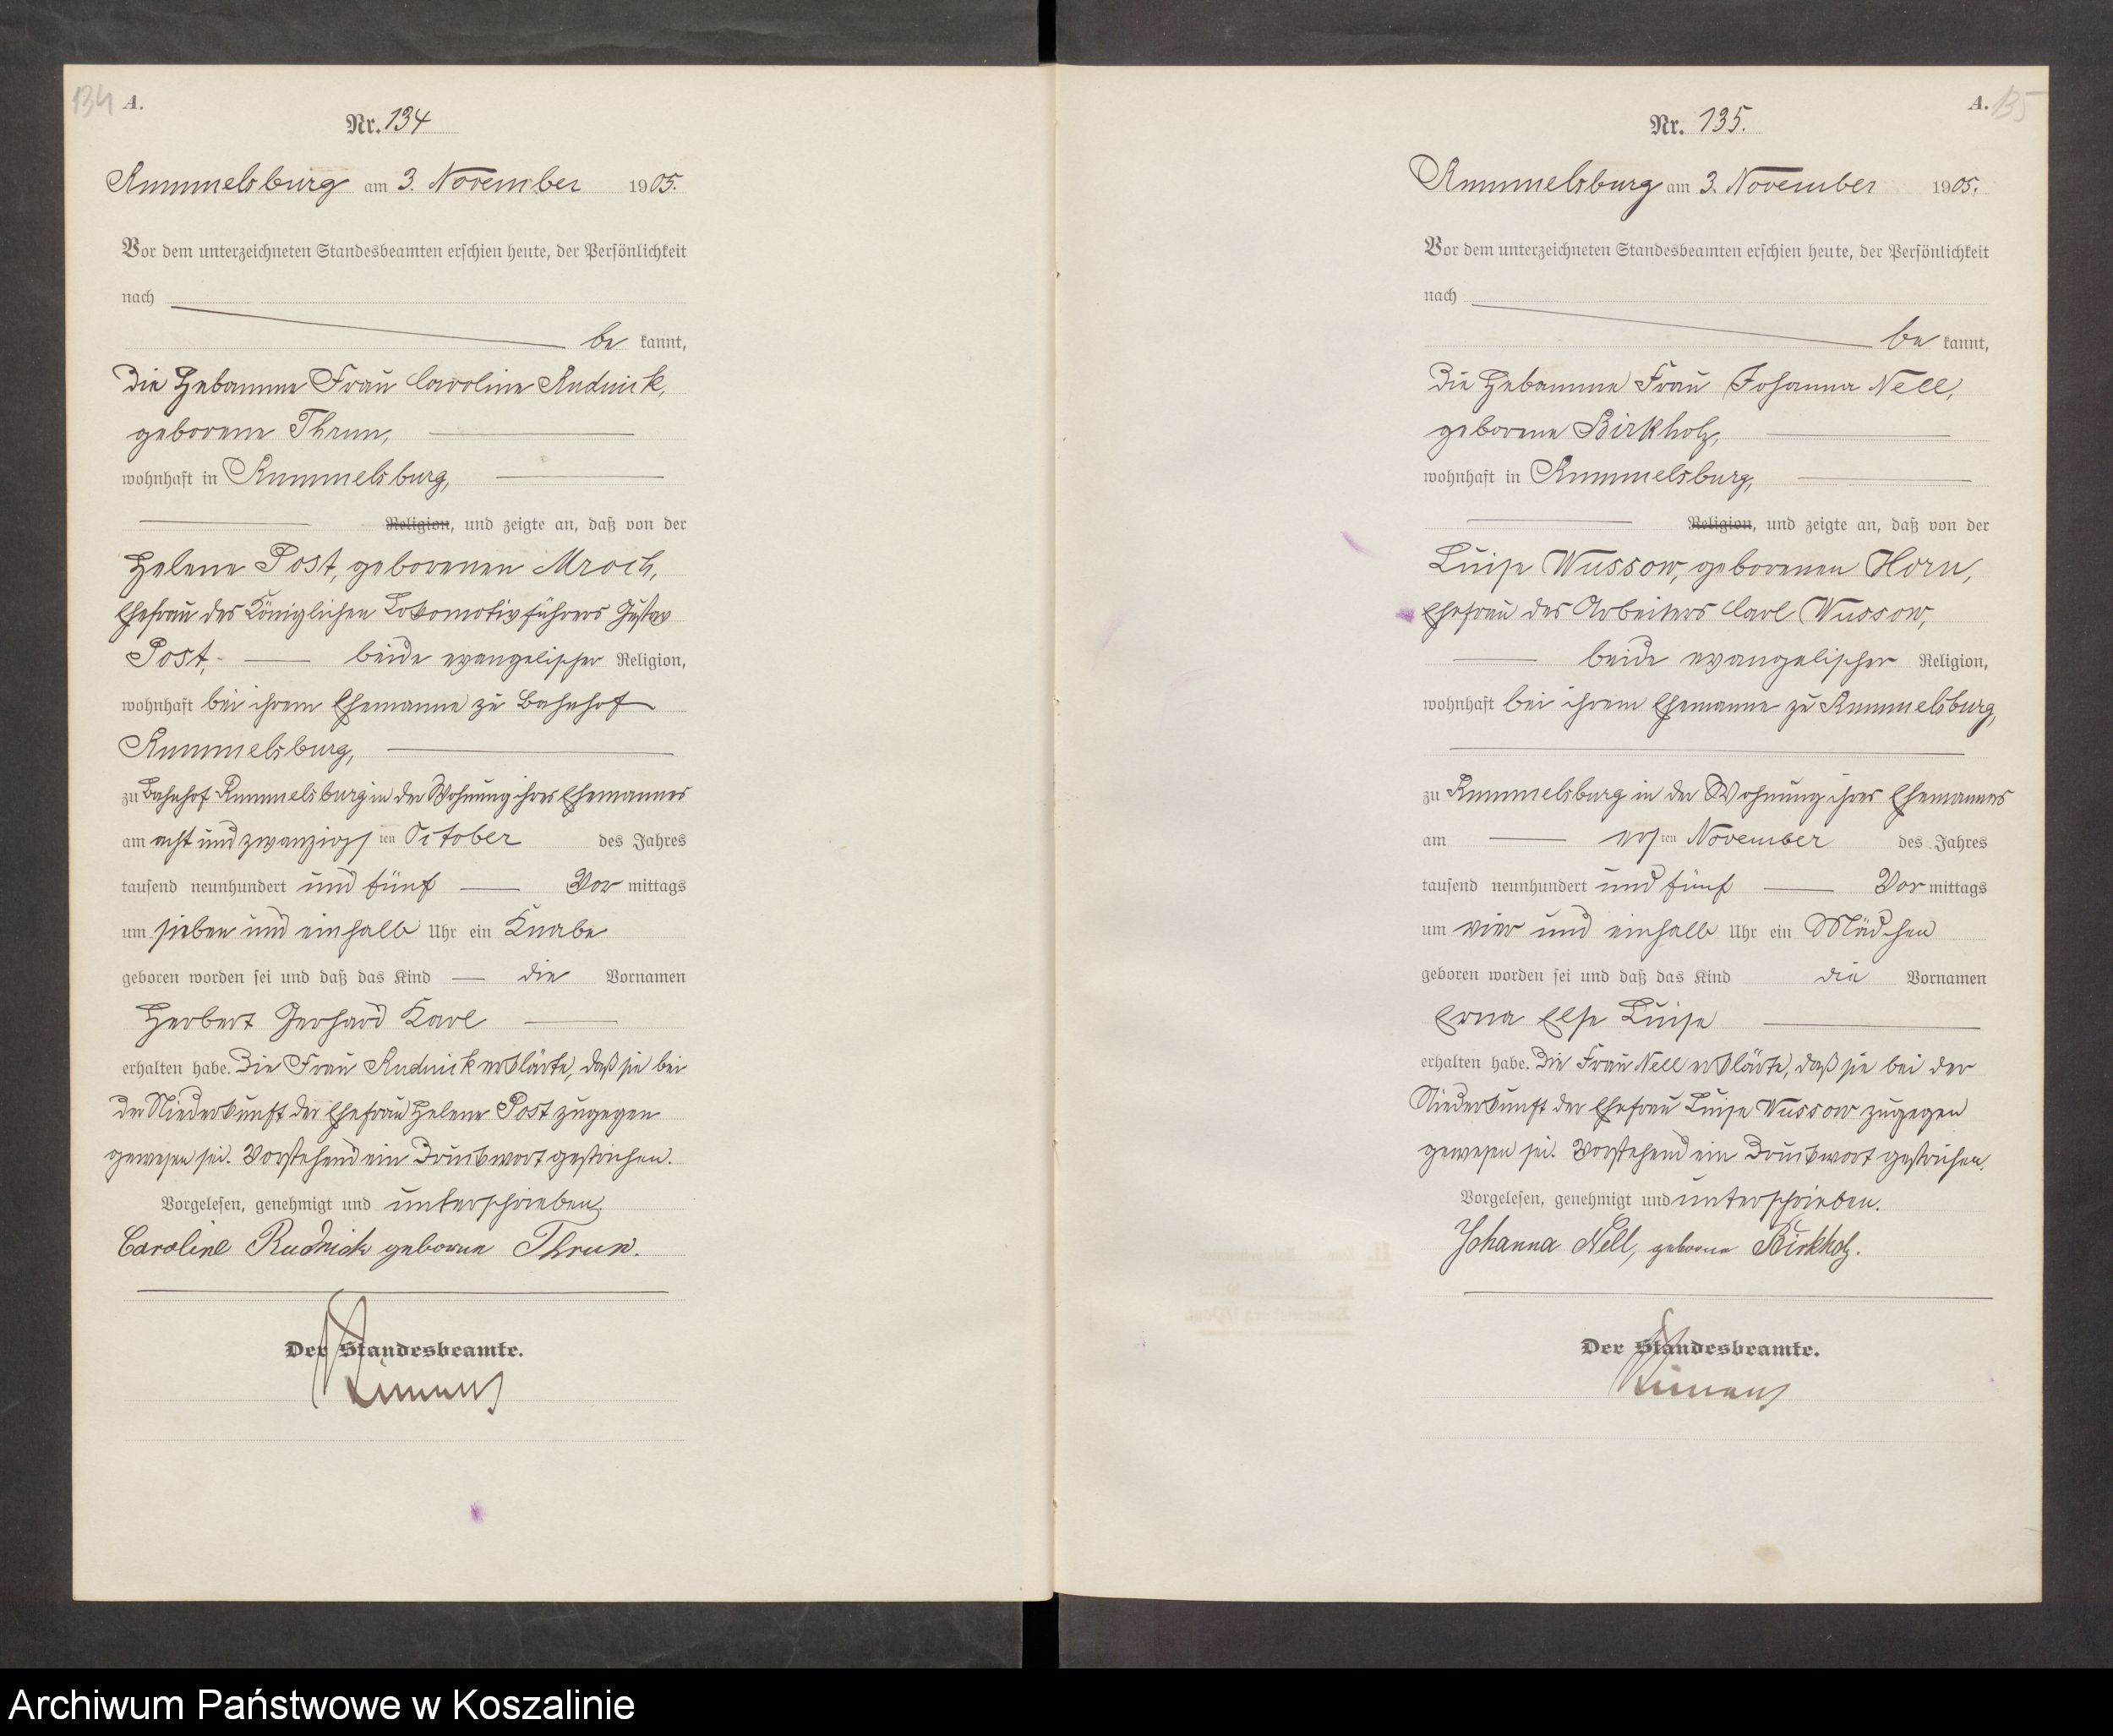 134 A.
Nr. 134
Rummelsburg am 3. November 1905.
Vor dem unterzeichneten Standesbeamten erschien heute, der Persönlichkeit
nach
be kannt,
die Hebamme Frau Caroline Rudnick,
geborene Thrun,
wohnhaft in Rummelsburg,
Religion, und zeigte an, daß von der
Helene Post, geborenen Mroch,
Ehefrau des Königlichen Lokomotivführers Gustav
Post, beide evangelischer Religion,
wohnhaft bei ihrem Ehemanne zu Bahnhof
Rummelsburg,
zu Bahnhof Rummelsburg in der Wohnung ihres Ehemannes
am acht und zwanzigsten October des Jahres
tausend neunhundert und fünf Vor mittags
um sieben und einhalb Uhr ein Knabe
geboren worden sei und daß das Kind die Vornamen
Herbert Gerhard Karl
erhalten habe. Die Frau Rudnick erklärte, daß sie bei
der Niederkunft der Ehefrau Helene Post zugegen
gewesen sei. Vorstehend ein Druckwort gestrichen.
Vorgelesen, genehmigt und unterschrieben.
Caroline Rudnick geborne Thrun.
Der Standesbeamte.
A. 135
Nr. 135.
Rummelsburg am 3. November 1905.
Vor dem unterzeichneten Standesbeamten erschien heute, der Persönlichkeit
nach
be kannt,
die Hebamme Frau Johanna Nell,
geborene Birkholz,
wohnhaft in Rummelsburg,
Religion, und zeigte an, daß von der
Luise Wussow, geborenen Horn,
Ehefrau des Arbeiters Carl Wussow,
beide evangelischer Religion,
wohnhaft bei ihrem Ehemanne zu Rummelsburg,
zu Rummelsburg in der Wohnung ihres Ehemannes
am ersten November des Jahres
tausend neunhundert und fünf Vor mittags
um vier und einhalb Uhr ein Mädchen
geboren worden sei und daß das Kind die Vornamen
Erna Else Luise
erhalten habe. Die Frau Nell erklärte, daß sie bei der
Niederkunft der Ehefrau Luise Wussow zugegen
gewesen sei. Vorstehend ein Druckwort gestrichen.
Vorgelesen, genehmigt und unterschrieben.
Johanna Nell, geborne Birkholz.
Der Standesbeamte.
Archiwum Państwowe w Koszalinie